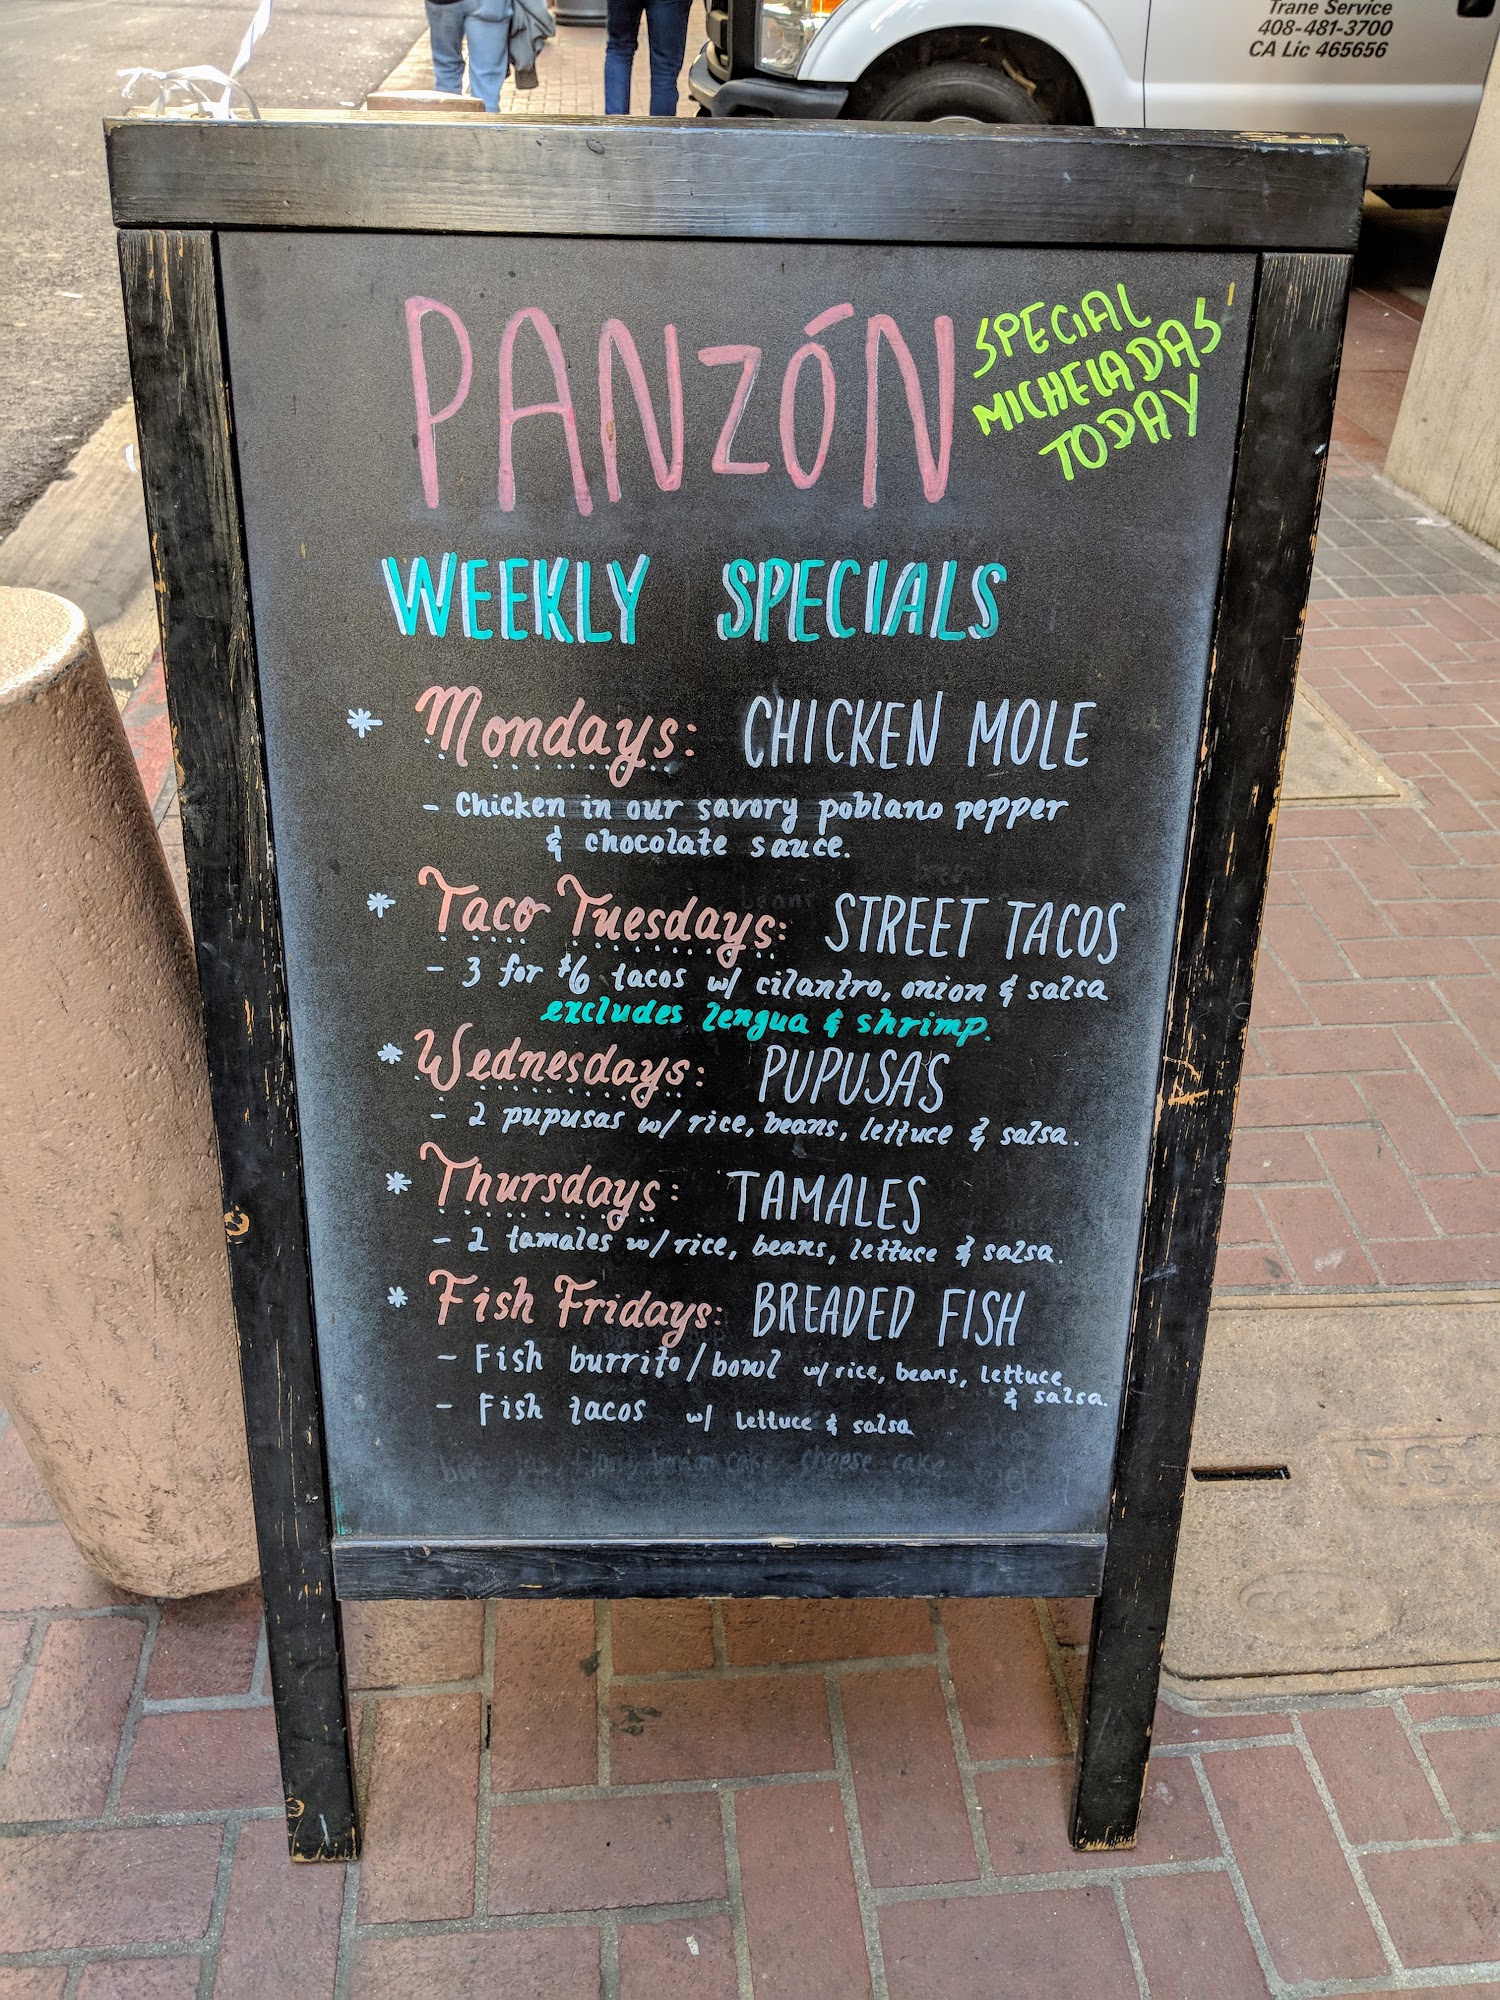 Trane Service
408-481-3700
CA Lic 465656
PANZÓN
SPECIAL
MICHELADAS
TODAY
WEEKLY SPECIALS
* Mondays: CHICKEN MOLE
- Chicken in our savory poblano pepper
& chocolate sauce.
* Taco Tuesdays: STREET TACOS
- 3 for $6 tacos w/ cilantro, onion & salsa
excludes lengua & shrimp.
* Wednesdays: PUPUSAS
- 2 pupusas w/ rice, beans, lettuce & salsa.
* Thursdays: TAMALES
- 2 tamales w/ rice, beans, lettuce & salsa.
* Fish Fridays: BREADED FISH
- Fish burrito/bowl w/ rice, beans, lettuce
& salsa.
- Fish tacos w/ lettuce & salsa
cheese cake